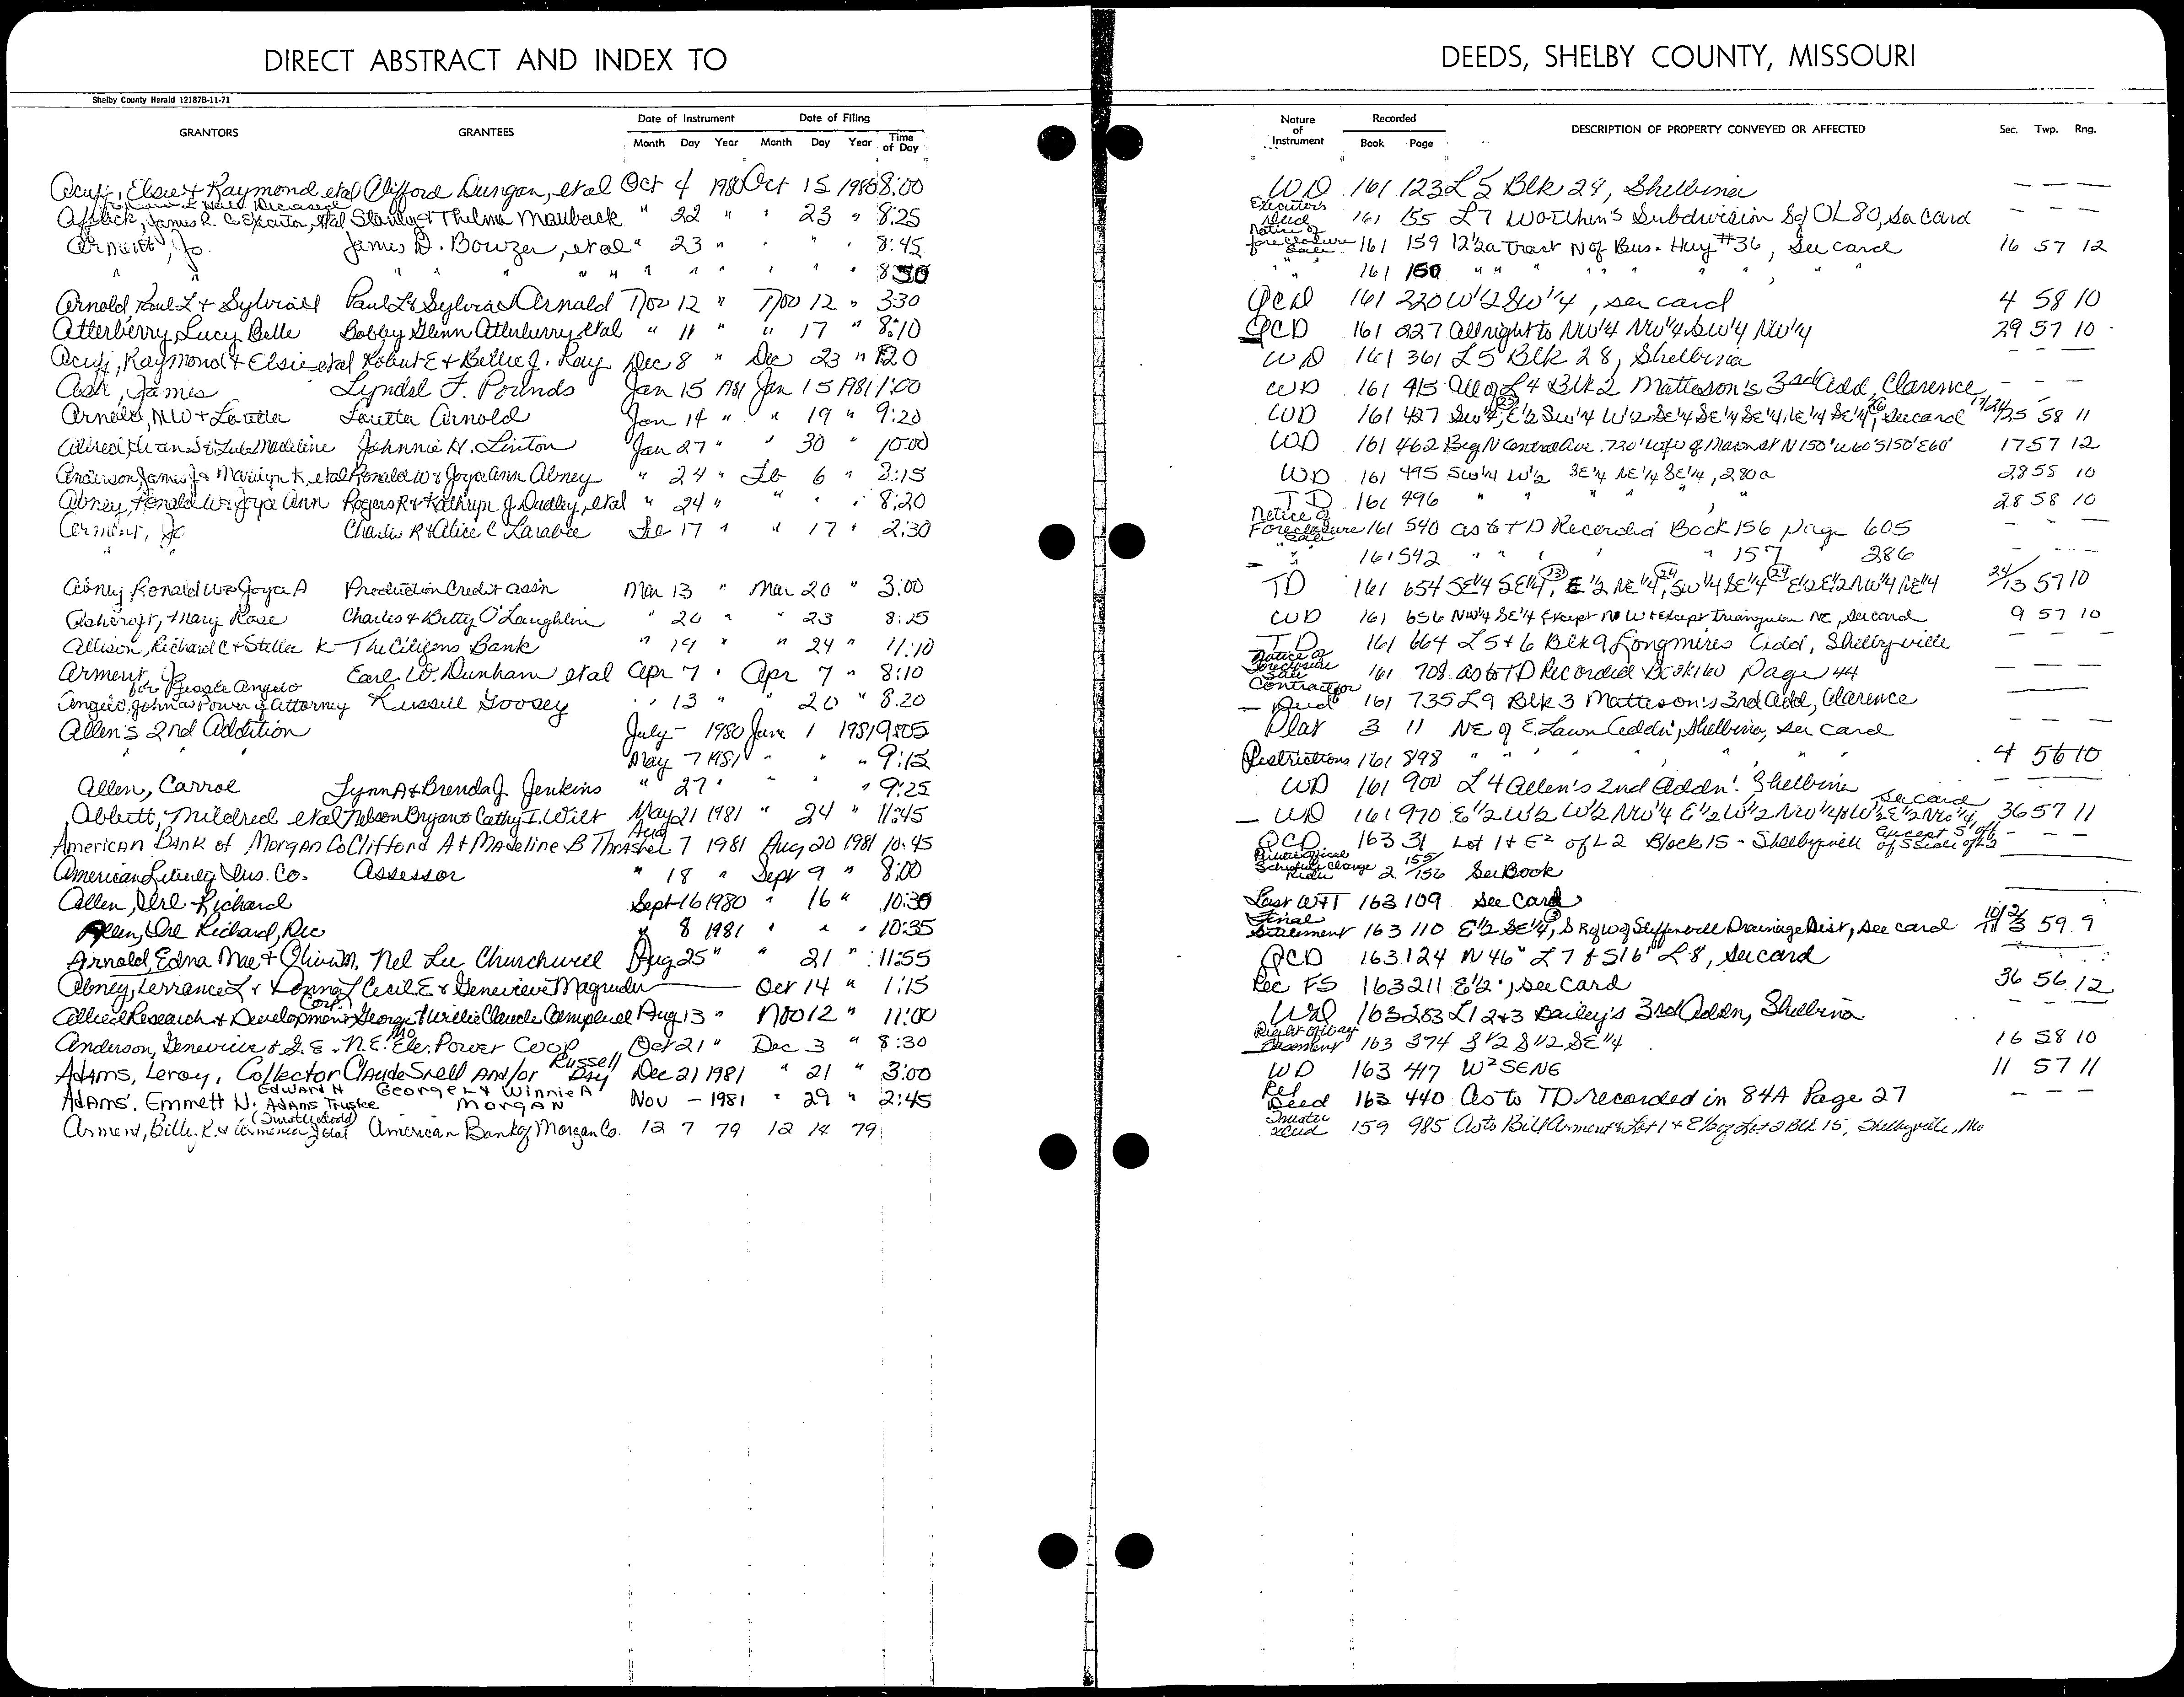 DIRECT ABSTRACT AND INDEX TO
DEEDS, SHELBY COUNTY, MISSOURI
Shelby County Herald 12187B-11-71
GRANTORS GRANTEES Date of Instrument Month Day Year Date of Filing Month Day Year Time of Day
Nature of Instrument Recorded Book Page DESCRIPTION OF PROPERTY CONVEYED OR AFFECTED Sec. Twp. Rng.
Acuff, Elsie & Raymond etal Clifford Dungan, etal Oct 4 1980 Oct 15 1980 8:00
WD 161 123 L5 Blk 28, Shelbina — — —
Affleck, James R. Co Executor, etal Stanly & Thelma Maubach " 22 " " 23 " 8:25
Executors Deed 161 155 L7 Worthen's Subdivision of OL 80, See Card — — —
Arment, Jo. James D. Bowzer, etal " 23 " " " " 8:45
Notice of foreclosure Sale 161 159 12 1/2a Tract N of Bus. Hwy #36, See card 16 57 12
" " " " " " " " " " " 8:50
" " 161 160 " " " " " " "
Arnold Paul L & Sylvia Paul L & Sylvia Arnold Nov 12 " Nov 12 " 3:30
QCD 161 220 W1/2 SW1/4, see card 4 58 10
Atterberry, Lucy Belle Bobby Glenn Atterberry, etal " 11 " " 17 " 8:10
QCD 161 227 All right to NW1/4 NW1/4 SW1/4 NW1/4 29 57 10
Acuff, Raymond & Elsie etal Robert E & Billie J. Ray Dec 8 " Dec 23 "
WD 161 361 L5 Blk 28, Shelbina — — —
Ash, James Lyndel F. Pounds Jan 15 1981 Jan 15 1981 1:00
WD 161 415 All of L4 Blk 2 Matteson's 3rd Add, Clarence — — —
Arnold, NW & Loretta Loretta Arnold Jan 14 " " 19 " 9:20
WD 161 427 SW1/4, E1/2 SW1/4 W1/2 SE1/4 SE1/4 SE1/4 See card 58 11
Madeline Johnnie H. Linton Jan 27 " " 30 10:00
WD 161 462 Beg N Central Ave. 720' N 150' W 60' S 150' E 60' 17 57 12
Anderson James J & Marilyn K, etal Ronald W & Joyce Ann Abney " 24 " Feb 6 " 8:15
WD 161 495 SW1/4 W1/2 SE1/4 NE1/4 SE1/4, 280a 28 58 10
Abney, Ronald W & Joyce Ann Rogers R & Kathryn J. Dudley, etal " 24 " " " " 8:20
TD 161 496 " " " " " " 28 58 10
Arment, Jo Charles R & Alice C Larabee Feb 17 " " 17 " 2:30
Notice of Foreclosure Sale 161 540 As to TD Recorded Book 156 page 605 — — —
" 161 542 " " " " " 157 " 286 — — —
Abney Ronald W & Joyce A Production Credit ass'n Mar 13 " Mar 20 " 3:00
TD 161 654 SE1/4 SE1/4, E1/2 NE1/4, SW1/4 SE1/4 E1/2 E1/2 NW1/4 NE1/4 24/13 57 10
Ashcroft, Mary Rose Charles & Betty O'Laughlin " 20 " " 23 8:25
WD 161 656 NW1/4 SE1/4 Except NW & Except triangular NE, See card 9 57 10
Allison, Richard C & Stella K The Citizens Bank " 19 " " 24 " 11:10
TD 161 664 L5 & 6 Blk 9 Longmires Add, Shelbyville — — —
Arment, Jo Earl W. Dunham etal Apr 7 " Apr 7 " 8:10
Notice of Foreclosure Sale 161 708 As to TD Recorded Book 160 Page 44 — — —
Angelo, John as Power of Attorney for Angelo Russell Goosey " 13 " " 20 " 8:20
Contract for Deed 161 735 L9 Blk 3 Matteson's 3rd Add, Clarence
Allen's 2nd Addition July — 1980 June 1 1981 9:05
Plat 3 11 NE of E. Lawn Addn; Shelbina, See card — — —
" " May 7 1981 " " " 9:15
Restrictions 161 898 " " " " " " " 4 56 10
Allen, Carrol Lynn A & Brenda J. Jenkins " 27 " " " 9:25
WD 161 900 L4 Allen's 2nd Addn. Shelbina — — —
Abbott, Mildred etal Nelson Bryan & Cathy I. Wilt May 21 1981 " 24 " 11:45
WD 161 970 E1/2 W1/2 W1/2 NW1/4 E1/2 W1/2 NW1/4 & W1/2 E1/2 NW1/4, See card 36 57 11
American Bank of Morgan Co Clifford A & Madeline B Thrasher Aug 7 1981 Aug 20 1981 10:45
QCD 163 31 Lot 1 & E2 of L2 Block 15 - Shelbyville except 5' off of S side of L2 — — —
American Liberty Ins. Co. Assessor " 18 " Sept 9 " 8:00
2 155/156 See Book
Allen, Orl Richard Sept 16 1980 " 16 " 10:30
Last W&T 163 109 See Card
Allen, Orl Richard, Dec " 8 1981 " " " 10:35
Final Settlement 163 110 E1/2 SE1/4, S R of W of Steffenville Drainage Dist, see card 59 9
Arnold, Edna Mae & Oliver M. Nel Lee Churchwell Aug 25 " " 21 " 11:55
QCD 163 124 N 46" L7 & S 16' L8, See card
Abney, Terrance L & Donna L Cecil E & Genevieve Magruder — Oct 14 " 1:15
Rec FS 163 211 E1/2, See Card 36 56 12
Allied Research & Development Corp. George & Willie Claude Campbell Aug 13 " Nov 12 " 11:00
WD 163 283 L1 2 & 3 Bailey's 3rd Addn, Shelbina
Anderson, Genevieve & G. E. N.E. Mo Ele. Power Coop Oct 21 " Dec 3 " 8:30
Right of Way Easement 163 374 S1/2 S1/2 SE1/4 16 58 10
Adams, Leroy, Collector Claude Snell and/or Russell Day Dec 21 1981 " 21 " 3:00
WD 163 417 W2 SENE 11 57 11
Adams, Emmett N. Edward N Adams Trustee George L & Winnie A Morgan Nov — 1981 " 29 " 2:45
Rel Deed 163 440 As to TD recorded in 84A Page 27 — — —
Arment, Billy R. & etal (Trustee Deed) American Bank of Morgan Co. 12 7 79 12 14 79
Trustee Deed 159 985 As to Bill Arment & Lot 1 & E1/2 of Lot 2 Blk 15, Shelbyville, Mo